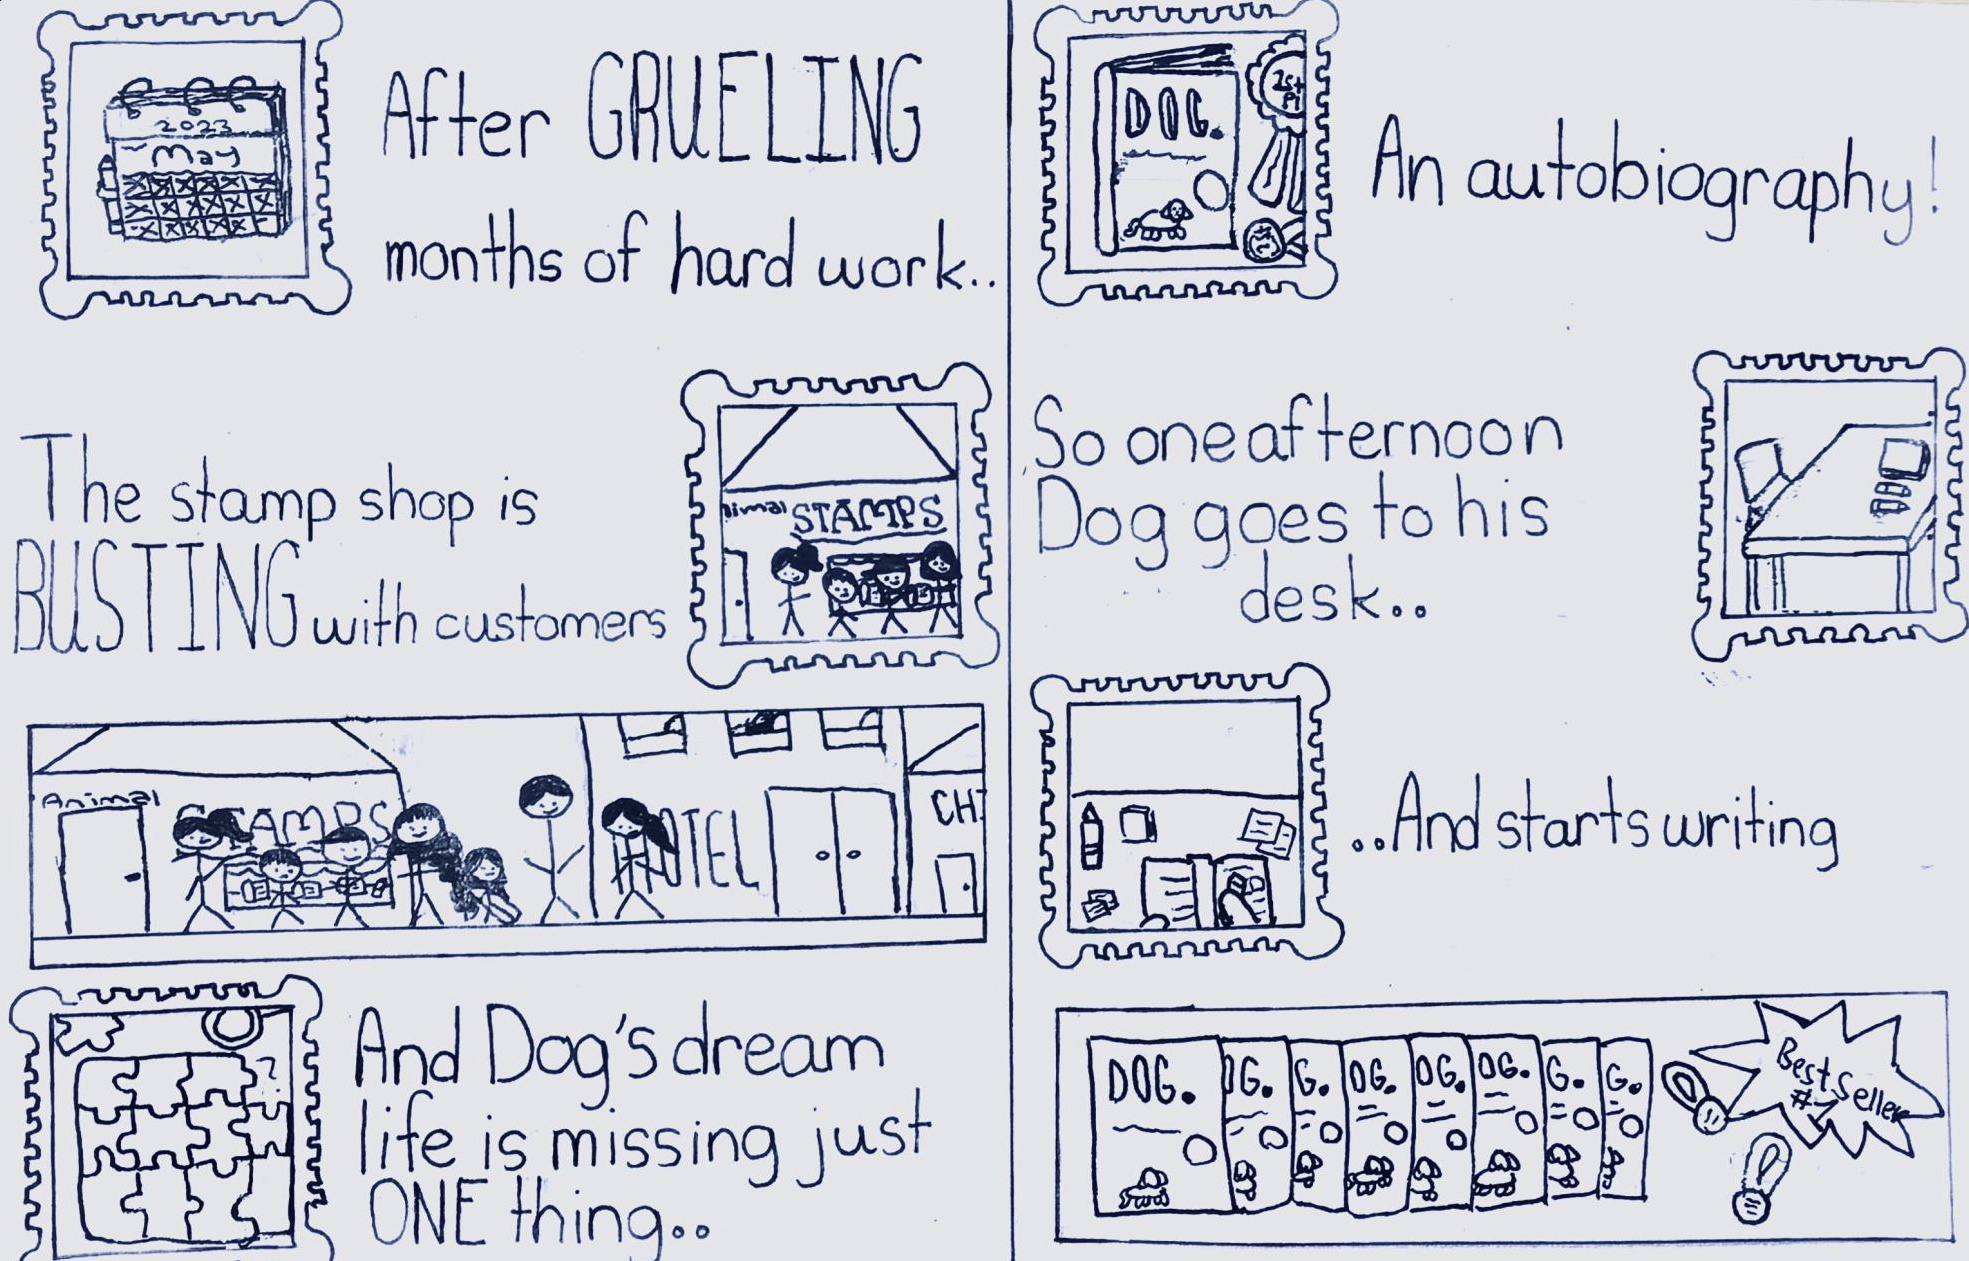 2023
May
After GRUELING
months of hard work..
The stamp shop is
BUSTING with customers
STAMPS
Animal
STAMPS
CH
And Dog's dream
life is missing just
ONE thing..
DOG.
1st
An autobiography!
So one afternoon
Dog goes to his
desk..
..And starts writing
DOG.
OG.
G.
OG.
OG.
OG.
G.
G.
Best Seller